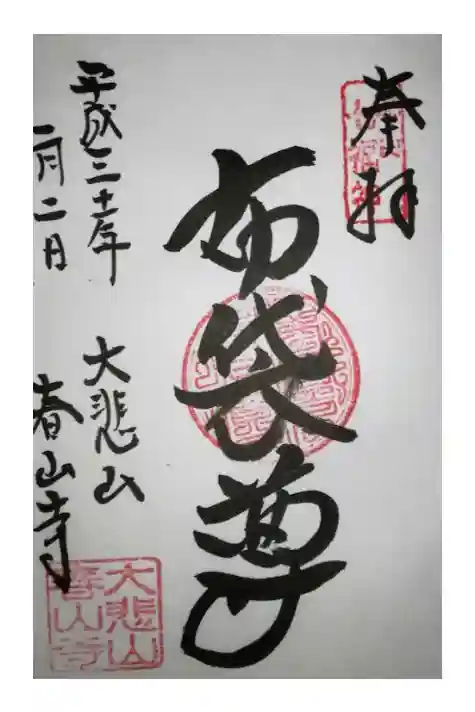 奉拝
布袋尊
平成三十一年
二月二日
大悲山
春山寺
大悲山
春山寺